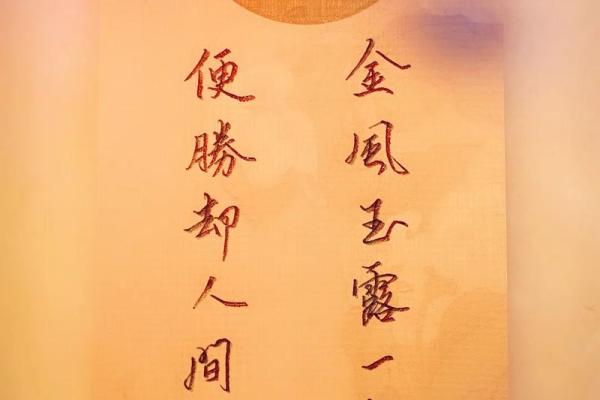 金風玉露一
便勝却人間